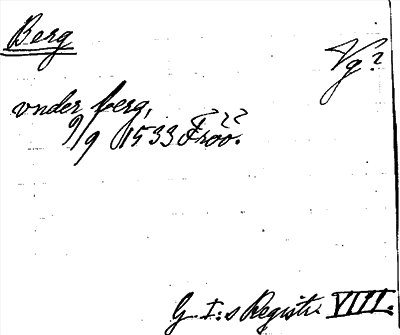 Berg
Vg?
vnder berg,
9/9 1533 Fröö.
G I:s Registr. VIII.